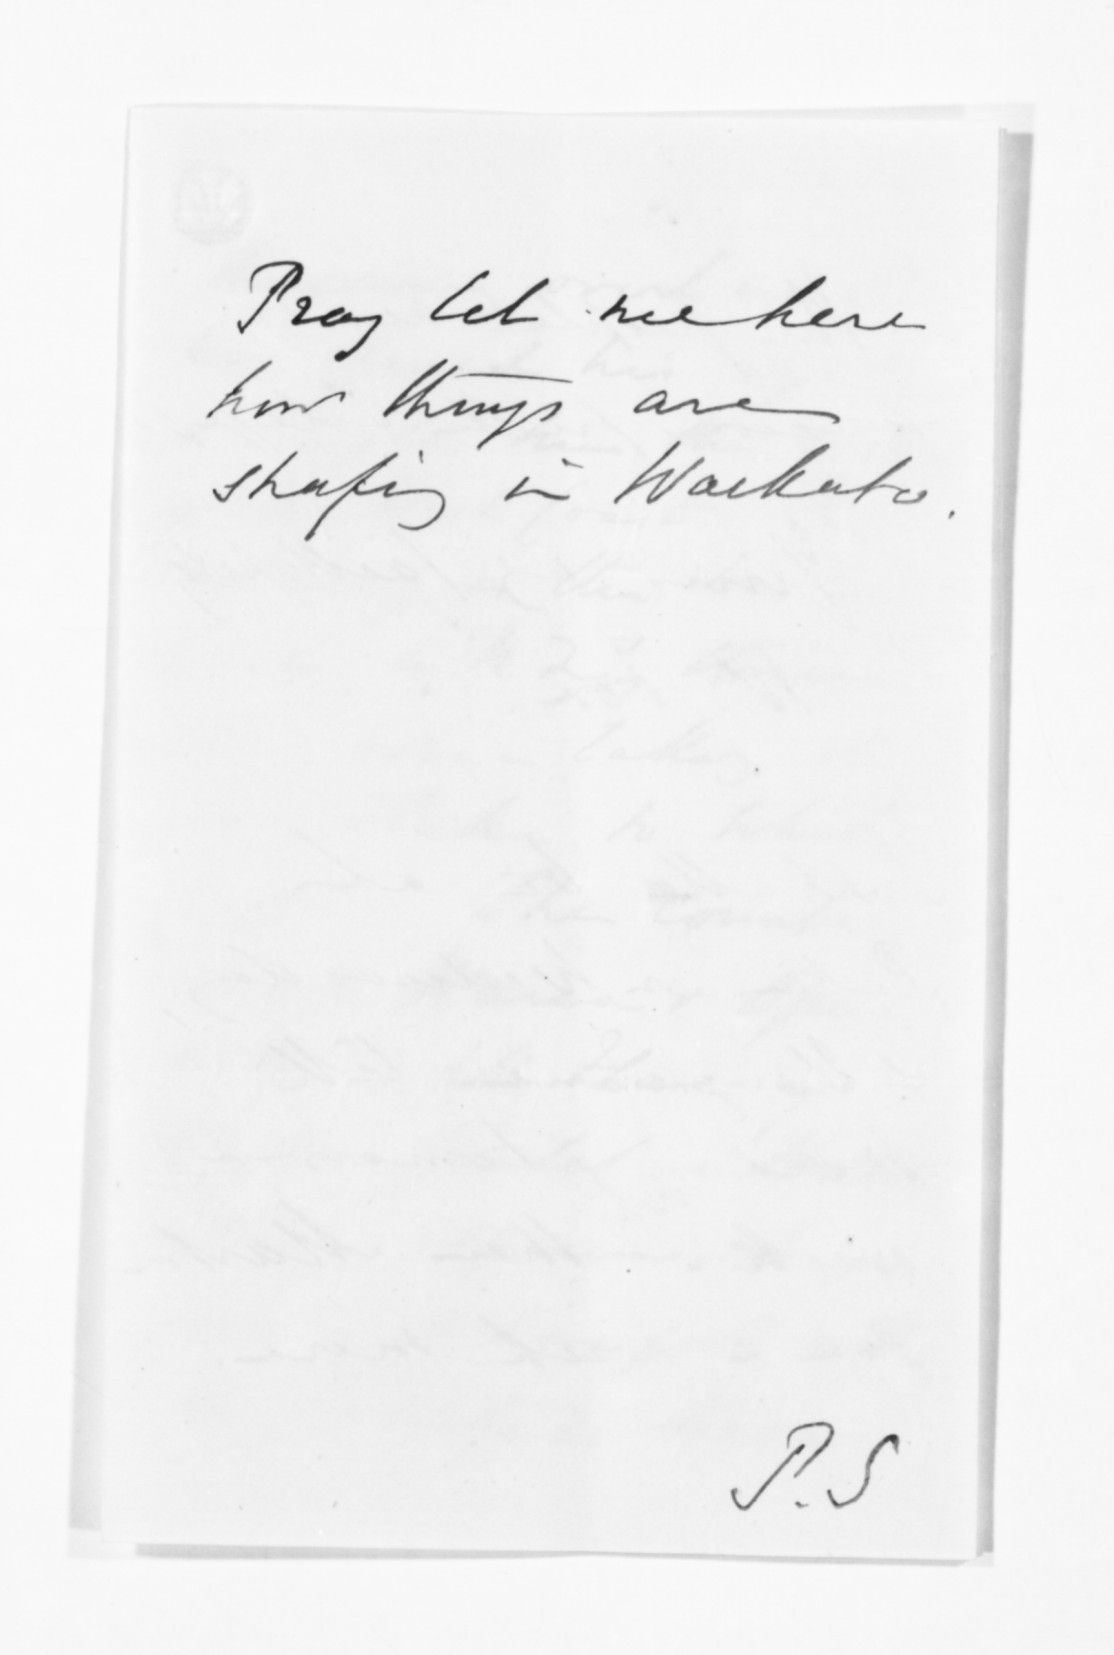 Pray let me here
how things are
shaping in Waikato.
P.S